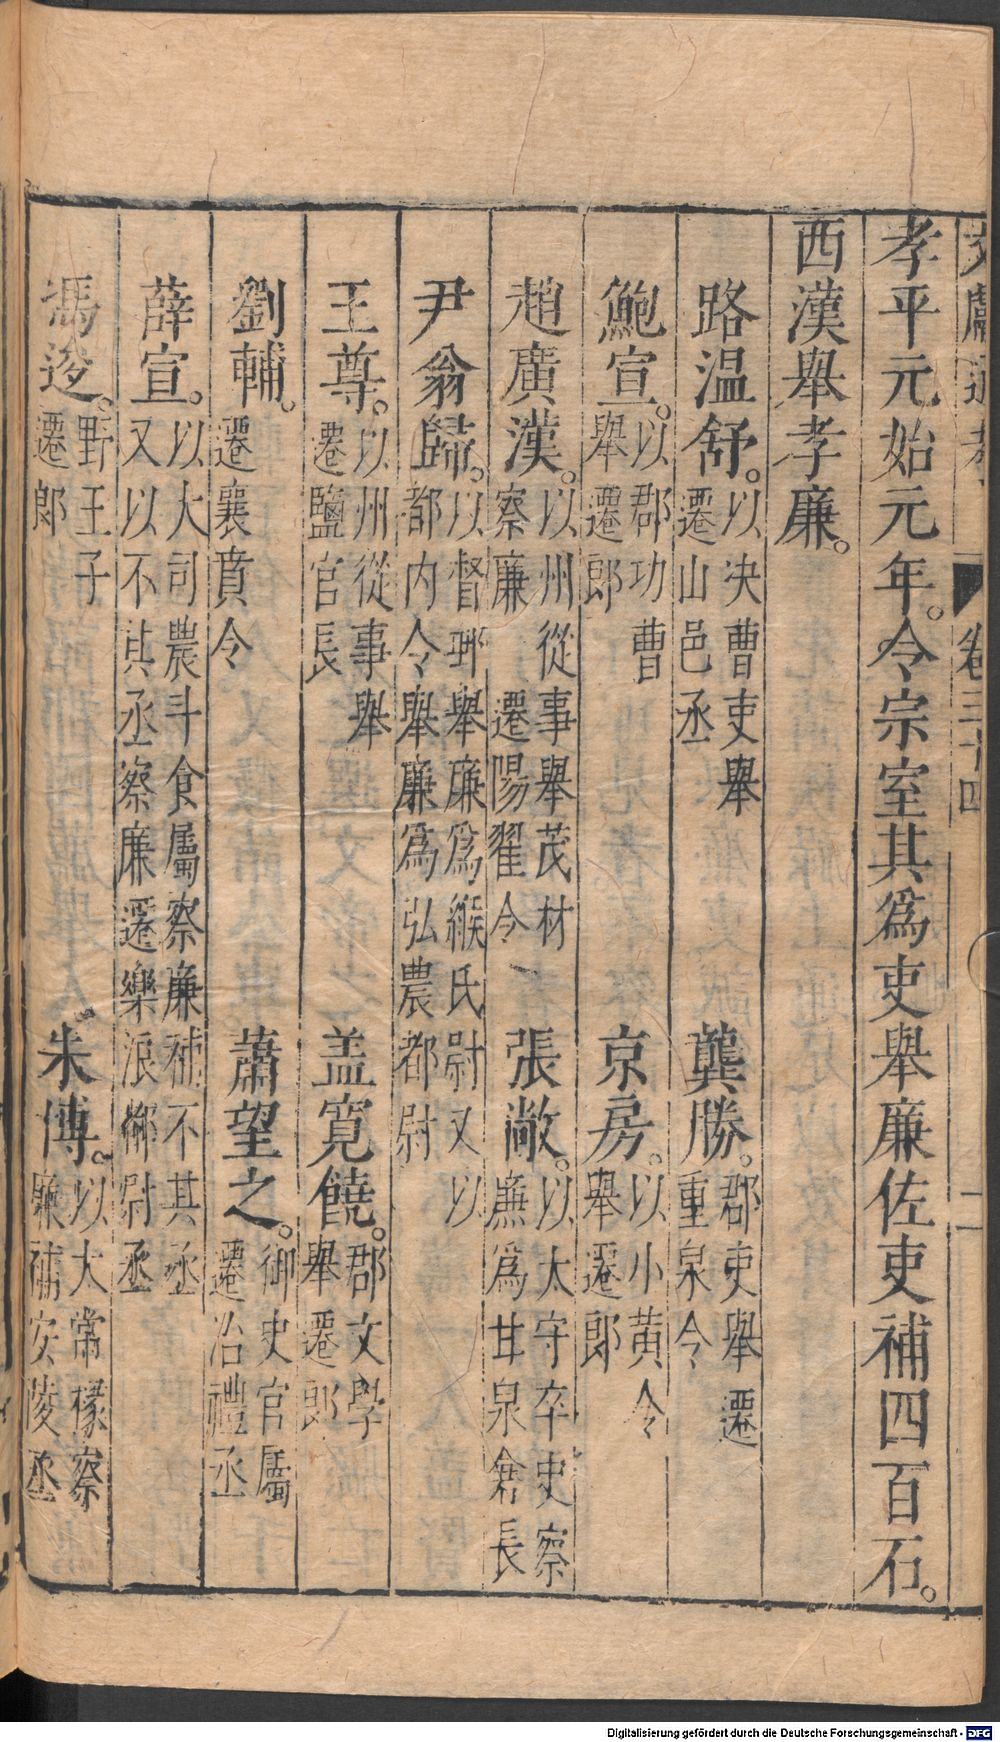 文獻通考 卷三十四 二
孝平元始元年。令宗室其爲吏舉廉佐吏補四百石。
西漢舉孝廉。
路温舒。以决曹吏舉遷山邑丞 龔勝。郡吏舉遷重泉令
鮑宣。以郡功曹舉遷郎 京房。以小黃令舉遷郎
趙廣漢。以州從事舉茂材察廉遷陽翟令 張敞。以太守卒史察廉爲甘泉倉長
尹翁歸。以督郵舉廉爲緱氏尉又以都内令舉廉爲弘農都尉
王尊。以州從事舉遷鹽官長 盖寛饒。郡文學舉遷郎
劉輔。遷襄賁令 蕭望之。御史官屬遷治禮丞
薛宣。以大司農斗食屬察廉補不其丞又以不其丞察廉遷樂浪都尉丞
馮逡。野王子遷郎 朱博。以太常掾察廉補安陵丞
Digitalisierung gefördert durch die Deutsche Forschungsgemeinschaft - DFG